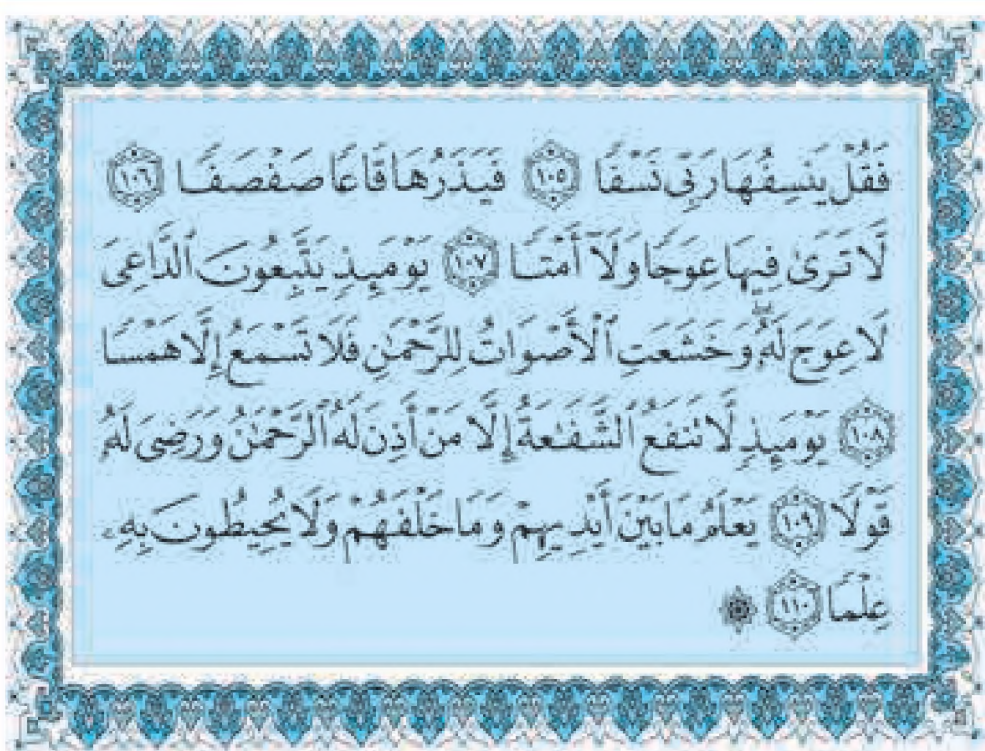 فَقُلْ يَنسِفُهَا رَبِّى نَسْفًا ١٠٥ فَيَذَرُهَا قَاعًا صَفْصَفًا ١٠٦
لَّا تَرَىٰ فِيهَا عِوَجًا وَلَآ أَمْتًا ١٠٧ يَوْمَئِذٍ يَتَّبِعُونَ ٱلدَّاعِىَ
لَا عِوَجَ لَهُۥ ۖ وَخَشَعَتِ ٱلْأَصْوَاتُ لِلرَّحْمَٰنِ فَلَا تَسْمَعُ إِلَّا هَمْسًا
١٠٨ يَوْمَئِذٍ لَّا تَنفَعُ ٱلشَّفَٰعَةُ إِلَّا مَنْ أَذِنَ لَهُ ٱلرَّحْمَٰنُ وَرَضِىَ لَهُۥ
قَوْلًا ١٠٩ يَعْلَمُ مَا بَيْنَ أَيْدِيهِمْ وَمَا خَلْفَهُمْ وَلَا يُحِيطُونَ بِهِۦ
عِلْمًا ١١٠ ۞